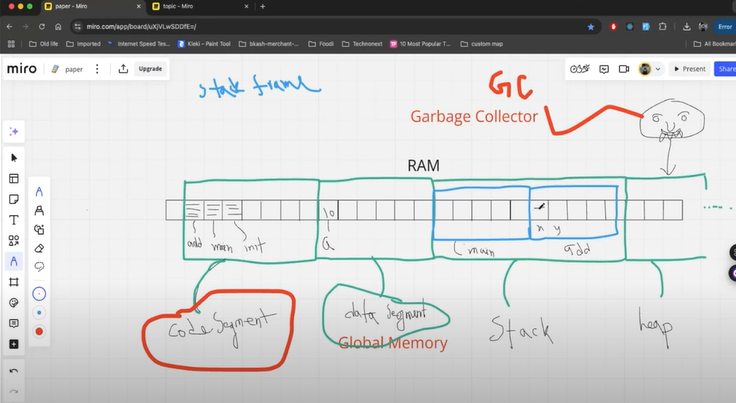 paper - Miro
topic - Miro
miro.com/app/board/uXjVLwSDDfE=/
Error
Old life
Imported
Internet Speed Tes...
Kleki - Paint Tool
bkash-merchant-...
Foodi
Technonext
10 Most Popular T...
custom map
All Bookmar
miro
paper
Upgrade
Present
Share
stack frame
GC
Garbage Collector
RAM
10
a
x y
add main init
main
add
Code Segment
data Segment
Global Memory
Stack
heap